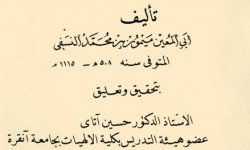 تأليف
أبي المعين ميمون بن محمد النسفي
المتوفى سنة ٥٠٨ هـ - ١١١٥ م
بتحقيق وتعليق
الاستاذ الدكتور حسين آتاى
عضو هيئة التدريس بكلية الالهيات بجامعة آنقرة